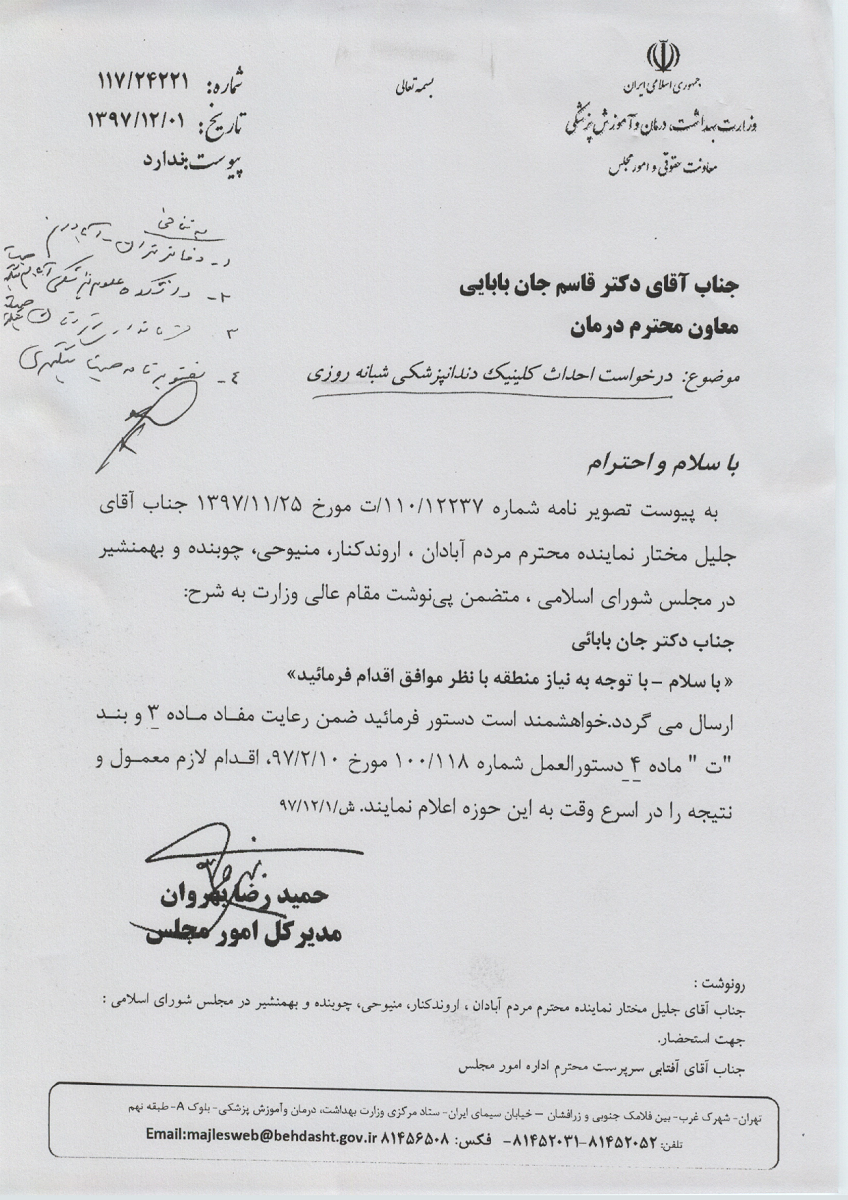 جمهوری اسلامی ایران
وزارت بهداشت، درمان و آموزش پزشکی
معاونت حقوقی و امور مجلس
بسمه تعالی
شماره: ۱۱۷/۲۴۲۲۱
تاریخ: ۱۳۹۷/۱۲/۰۱
پیوست: ندارد
۱- دفاتر تهران - آبادان
۲- دانشکده علوم پزشکی آبادان
۳
۴-
جناب آقای دکتر قاسم جان بابایی
معاون محترم درمان
موضوع: درخواست احداث کلینیک دندانپزشکی شبانه روزی
با سلام و احترام
به پیوست تصویر نامه شماره ۱۱۰/۱۲۲۳۷/ت مورخ ۱۳۹۷/۱۱/۲۵ جناب آقای
جلیل مختار نماینده محترم مردم آبادان ، اروندکنار، منیوحی، چوبنده و بهمنشیر
در مجلس شورای اسلامی ، متضمن پی‌نوشت مقام عالی وزارت به شرح:
جناب دکتر جان بابائی
«با سلام – با توجه به نیاز منطقه با نظر موافق اقدام فرمائید»
ارسال می گردد.خواهشمند است دستور فرمائید ضمن رعایت مفاد ماده ۳ و بند
"ت " ماده ۴ دستورالعمل شماره ۱۰۰/۱۱۸ مورخ ۹۷/۲/۱۰، اقدام لازم معمول و
نتیجه را در اسرع وقت به این حوزه اعلام نمایند. ش/۹۷/۱۲/۱
حمید رضا بهروان
مدیرکل امور مجلس
رونوشت :
جناب آقای جلیل مختار نماینده محترم مردم آبادان ، اروندکنار، منیوحی، چوبنده و بهمنشیر در مجلس شورای اسلامی :
جهت استحضار.
جناب آقای آفتابی سرپرست محترم اداره امور مجلس
تهران- شهرک غرب- بین فلامک جنوبی و زرافشان – خیابان سیمای ایران- ستاد مرکزی وزارت بهداشت، درمان وآموزش پزشکی- بلوک A- طبقه نهم
تلفن: ۸۱۴۵۲۰۵۲-۸۱۴۵۲۰۳۱- فکس: ۸۱۴۵۶۵۰۸ Email:majlesweb@behdasht.gov.ir